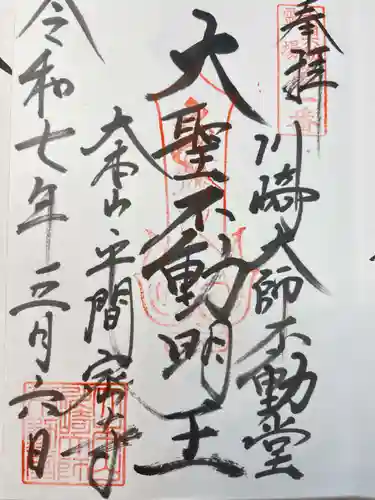 奉拝
川崎大師不動堂
大聖不動明王
大本山平間寺
令和七年五月六日